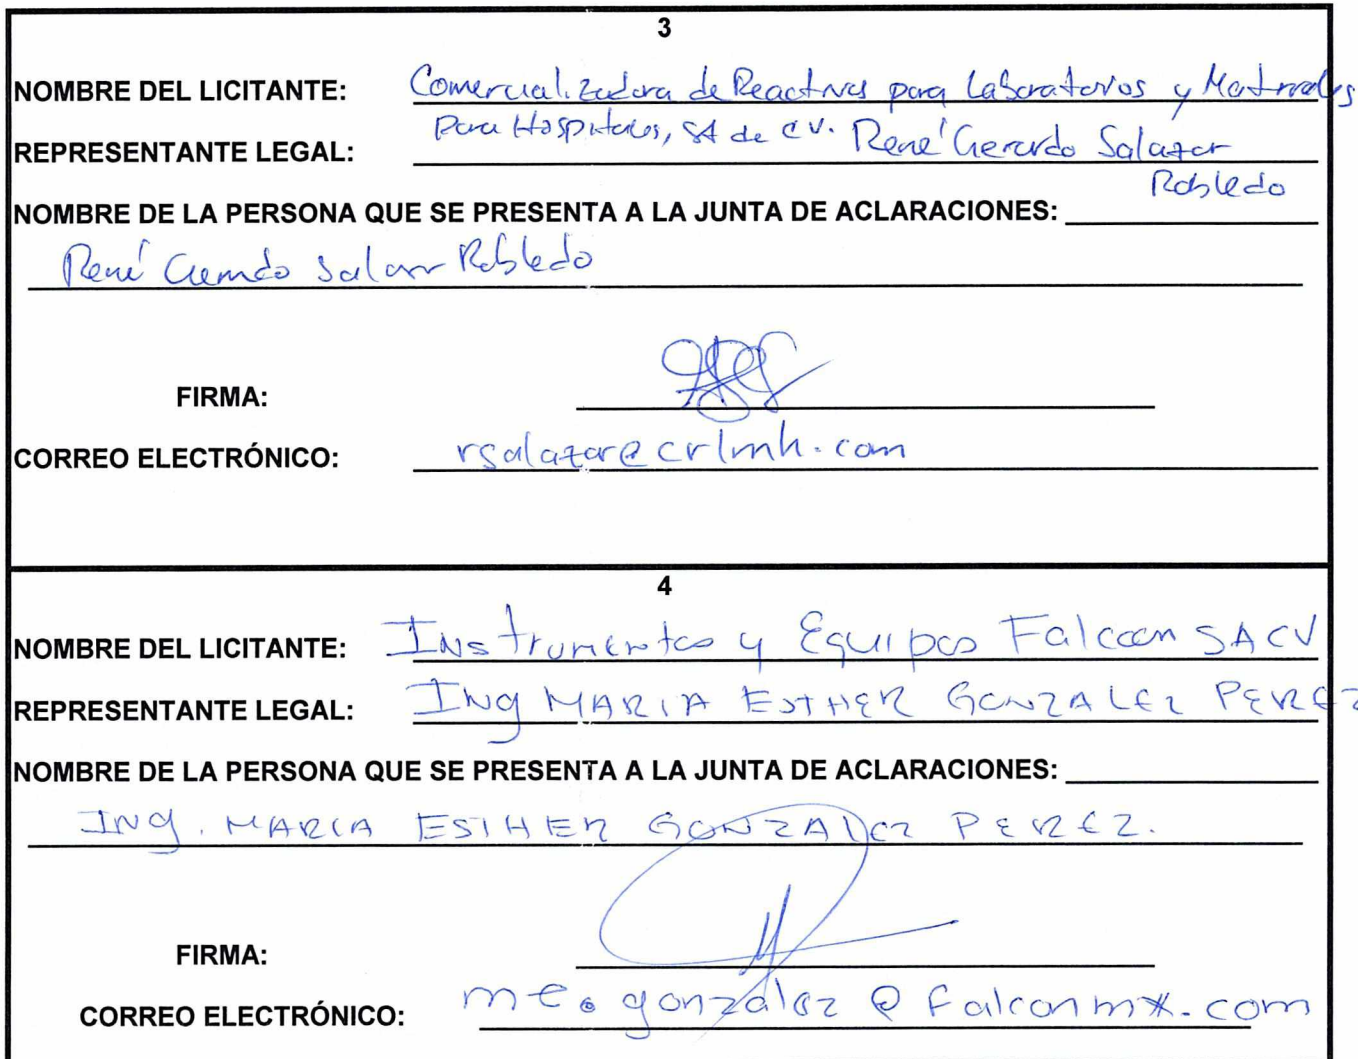 3
NOMBRE DEL LICITANTE: Comercializadora de Reactivos para Laboratorios y Materiales
Para Hospitales, SA de CV.
REPRESENTANTE LEGAL: René Gerardo Salazar
Robledo
NOMBRE DE LA PERSONA QUE SE PRESENTA A LA JUNTA DE ACLARACIONES:
René Gerardo Salazar Robledo
FIRMA:
CORREO ELECTRÓNICO: rsalazar@crlmh.com
4
NOMBRE DEL LICITANTE: Instrumentos y Equipos Falcon SACV
REPRESENTANTE LEGAL: Ing MARIA ESTHER GONZALEZ PEREZ
NOMBRE DE LA PERSONA QUE SE PRESENTA A LA JUNTA DE ACLARACIONES:
Ing. MARIA ESTHER GONZALEZ PEREZ.
FIRMA:
CORREO ELECTRÓNICO: me.gonzalez@falconmx.com